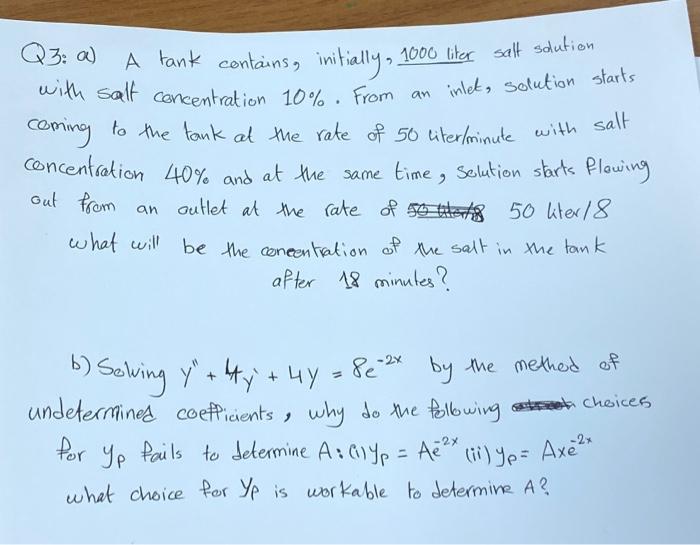 Q3: a) A tank contains, initially, 1000 liter salt solution
with salt concentration 10%. From an inlet, solution starts
coming to the tank at the rate of 50 liter/minute with salt
concentration 40% and at the same time, solution starts flowing
out from an outlet at the rate of 50 liter/8
what will be the concentration of the salt in the tank
after 18 minutes?
b) Solving y" + 4y' + 4y = 8e^-2x by the method of
undetermined coefficients, why do the following choices
for yp fails to determine A: (i) yp = Ae^-2x (ii) yp = Axe^-2x
what choice for yp is workable to determine A?